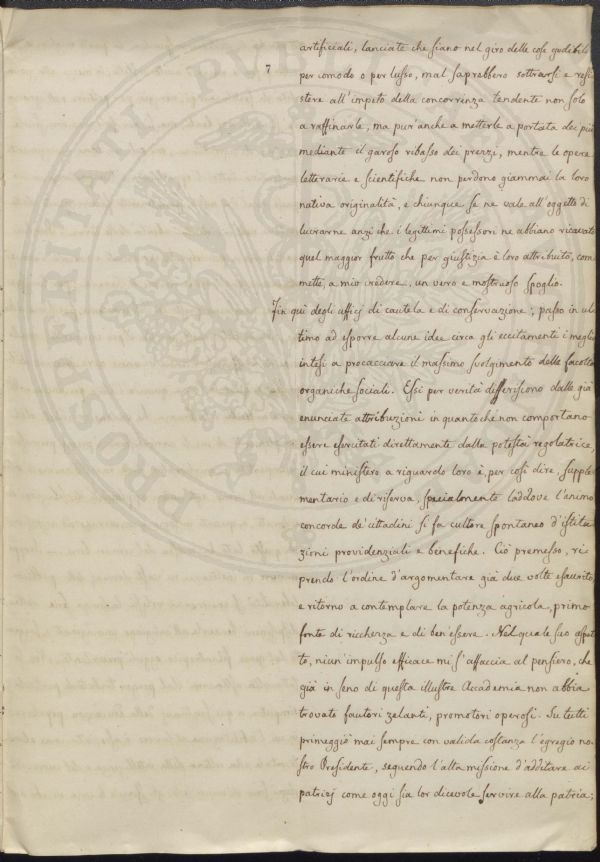 artificiali, lanciate che siano nel giro delle cose godibili
7
per comodo o per lusso, mal saprebbero sottrarsi e resi
stere all'impeto della concorrenza tendente non solo
a raffinarle, ma pur'anche a metterle a portata dei più
mediante il garoso ribasso dei prezzi, mentre le opere
letterarie e scientifiche non perdono giammai la loro
nativa originalità, e chiunque se ne vale all'oggetto di
lucrarne anzi che i legittimi possessori ne abbiano ricavato
quel maggior frutto che per giustizia è loro attribuito, com
mette, a mio credere, un vero e mostruoso spoglio.
Fin qui degli ufficj di cautela e di conservazione; passo in ul
timo ad esporre alcune idee circa gli eccitamenti i meglio
intesi a procacciare il massimo svolgimento delle facoltà
organiche sociali. Essi per verità differiscono dalle già
enunciate attribuzioni in quanto che non comportano
essere esercitati direttamente dalla potestà regolatrice,
il cui ministero a riguardo loro è, per così dire, supple
mentario e di riserva, specialmente laddove l'animo
concorde de' cittadini si fa cultore spontaneo d'istitu
zioni providenziali e benefiche. Ciò premesso, ri
prendo l'ordine d'argomentare già due volte esaurito,
e ritorno a contemplare la potenza agricola, primo
fonte di ricchezza e di ben'essere. Nel quale suo aspet
to, niun'impulso efficace mi s'affaccia al pensiero, che
già in seno di questa illustre Accademia non abbia
trovato fautori zelanti, promotori operosi. Su tutti
primeggiò mai sempre con valida costanza l'egregio no
stro Presidente, seguendo l'alta missione d'additare ai
patrizj come oggi sia lor dicevole servire alla patria;
PROSPERITATI PVBLI